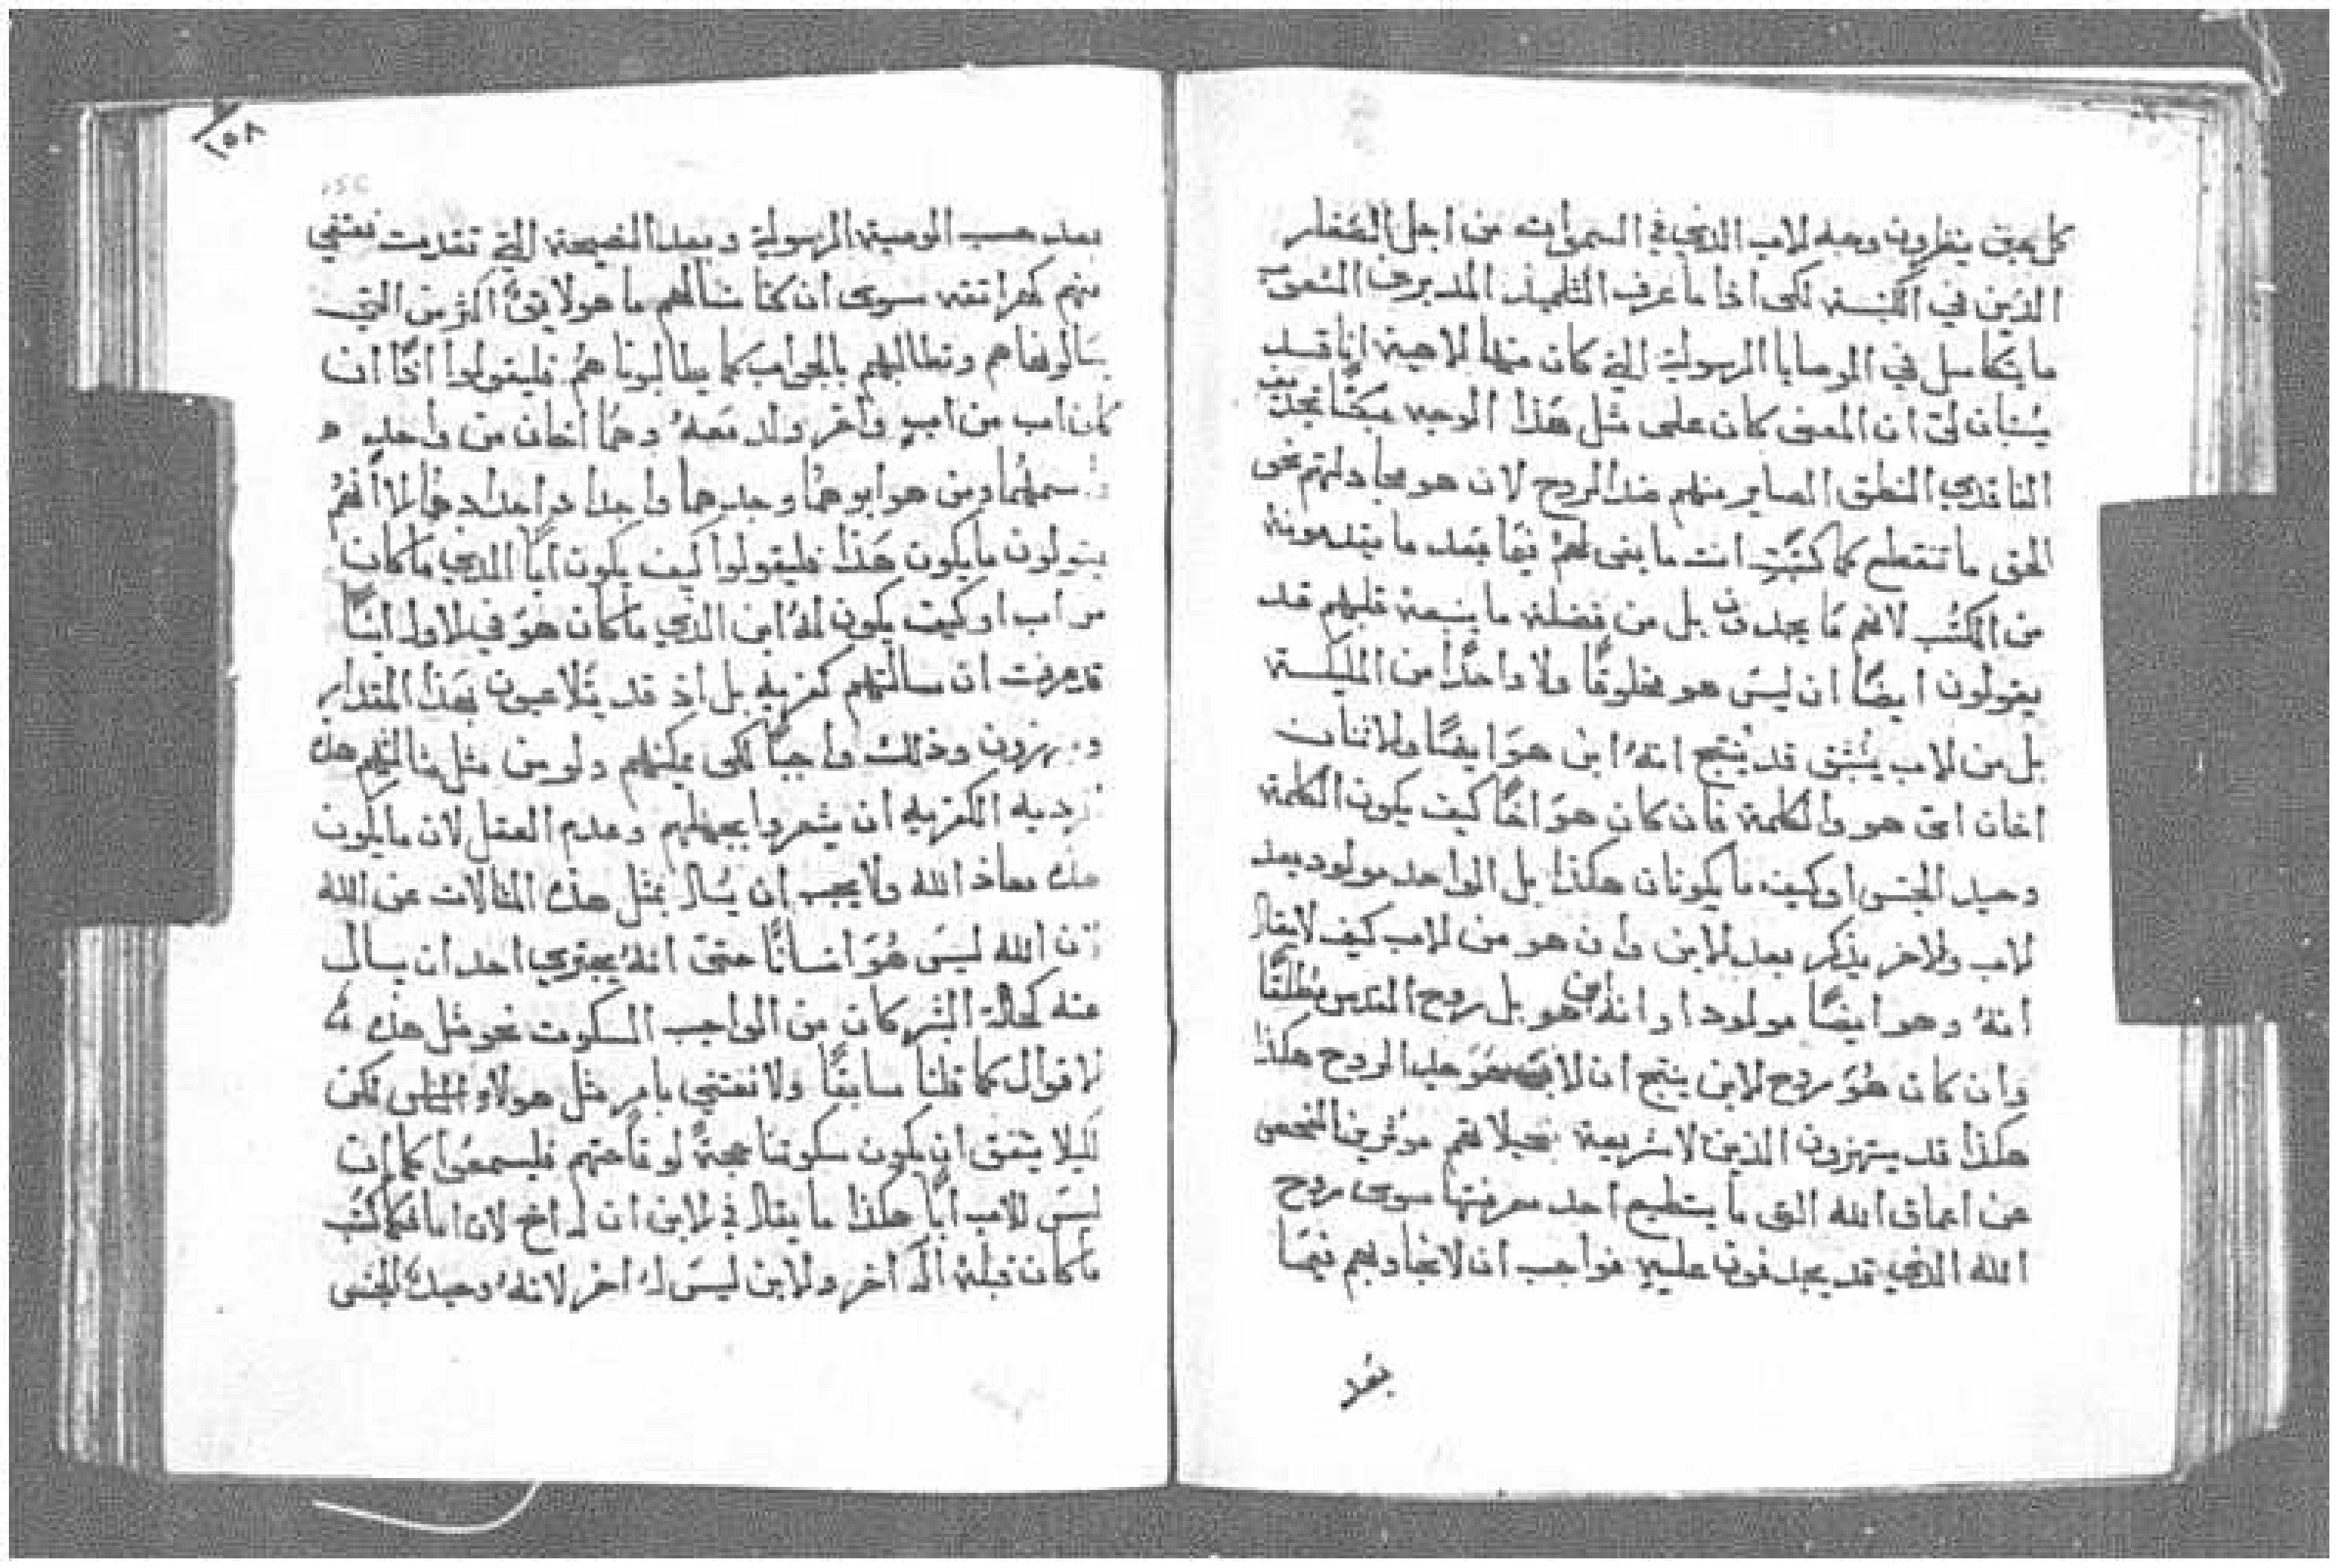 كل حين ينظرون وجه لاب الذي في السموات من اجل الصغار
الذين في الكنيسة لكى اذا ما عرف التلميذ المديرين
ما يتكاسل في الوصايا الرسولية التي كان متهيا لاهية انا قد
يستبان لي ان المعنى كان على مثل هذا الوجه
الناقدي المنطق الصاير منهم ضد الروح لان هو مجادلتهم نحو
الحق ما تنقطع كما كتبت انت ما بقى لهم فيما بعد ما يتدعونه
من الكتب لانهم ما يجدون بل من فضلة ما بسعة قلبهم قد
يقولون ايضًا ان ليس هو مخلوقًا ولا واحدًا من المليكة
بل من لاب ينبثق قد ينتج انهُ ابن هوَ ايضًا ولاثنان
اخان اعني هو والكلمة فان كان هوَ اخًا كيف يكون الكلمة
وحيد الجنس او كيف ما يكونان هكذا بل الواحد مولود بعد
لاب ولاخر يذكر بعد لابن وان هو من لاب كيف لا يقال
انهُ وهو ايضًا مولود او انه ابن هو بل روح القدس مطلقًا
وان كان هُوَ روح لابن ينتج ان لاب هوَ جد الروح هكذا
هكذا قد يستهزون الذين لا شريعة لهم موثرين الفحص
عن اعماق الله التي ما يستطيع احد معرفتها سوى روح
الله الذي قد يجدفون عليهِ فواجب ان لا نجاوبهم فيما
بعد
١٥٨
بعد حسب الوصية الرسولية وبعد النصيحة التي تقدمت نعتفي
منهم كهراتقه سوى ان كنا نسالهم ما هو لايق اكثر من التي
يسالونها هم ونطالبهم بالجواب كما يطالبونا همُ فليقولوا اذًا ان
كان اب من ابٍ واخر ولد معهُ وهما اخان من واحدٍ
سميهما ومن هو ابوهما وجدهما واجداد اجدادهما لا انهمُ
يقولون ما يكون هَذا فليقولوا كيف يكون ابًا الذي ما كان
من اب او كيف يكون لهُ ابن الذي ما كان هوَ في لاول ابنًا
قد عرفت ان سالتهم كفرية بل اذ قد يتلاعبون بهذا المقدار
ويهزون وذلك واجبًا لكى يمكنهم ولو من مثل مسالتهم هذه
الردية الكفرية ان يشعروا بجهلهم وعدم العقل لان ما يكون
هذه معاذ الله ولا يجب ان يُسال بمثل هذه المثالات عن الله
لان الله ليسَ هُوَ انسانًا حتى انهُ يجتري احد ان يسال
عنه كحالة البشر كان من الواجب السكوت نحو مثل هذه
لاقوال كما قلنا سابقًا ولا نعتني بامر مثل هولاء لكن
ليلا يتفق ان يكون سكوتنا حجةً لوقاحتهم فليسمعوا كما ان
ليسَ للاب ابًا هكذا ما يقال في لابن ان لهُ اخ لان كما كتب
ما كان قبله اله اخر ولابن ليسَ لهُ اخر لانهُ وحيد الجنس